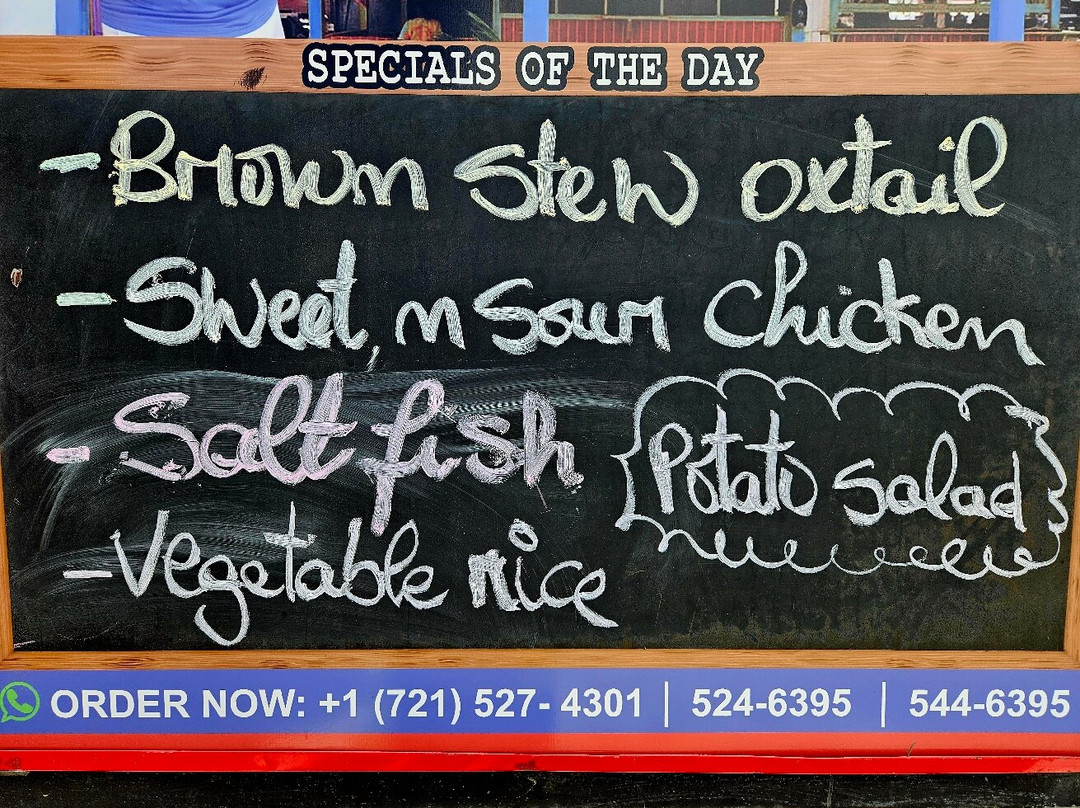 SPECIALS OF THE DAY
- Brown Stew oxtail
- Sweet, n Sour Chicken
- Salt fish
Potato salad
- Vegetable rice
ORDER NOW: +1 (721) 527- 4301 | 524-6395 | 544-6395